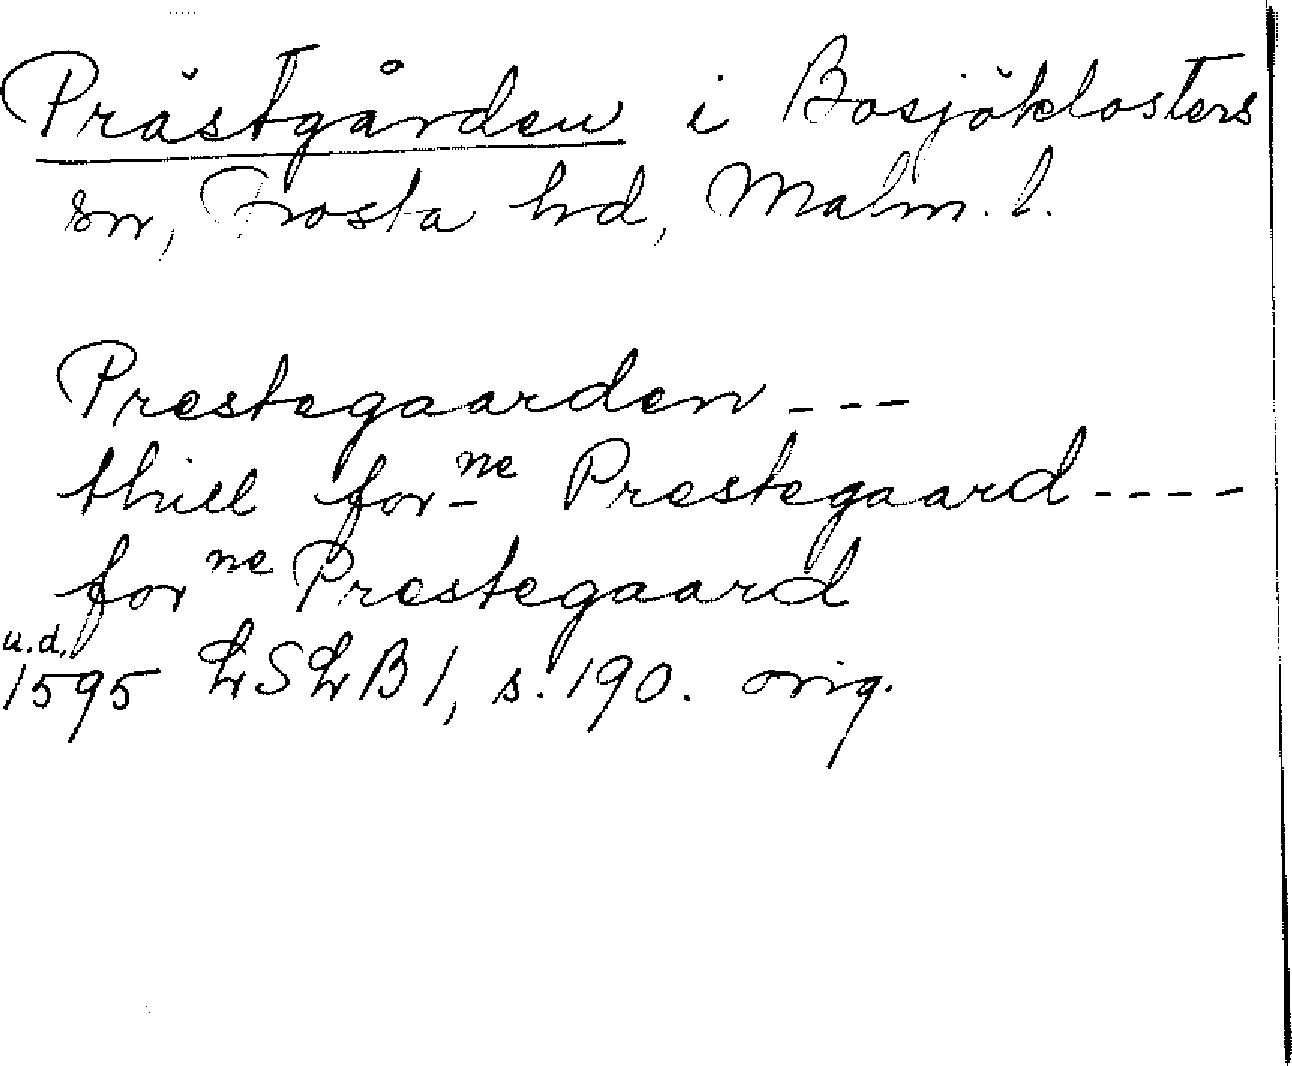 Prästgården i Bosjöklosters
sn, Frosta hd, Malm. l.
Prestegaarden ---
thill for ne Prestegaard ----
for ne Prestegaard
u.d.
1595 LSLB 1, s. 190. orig.